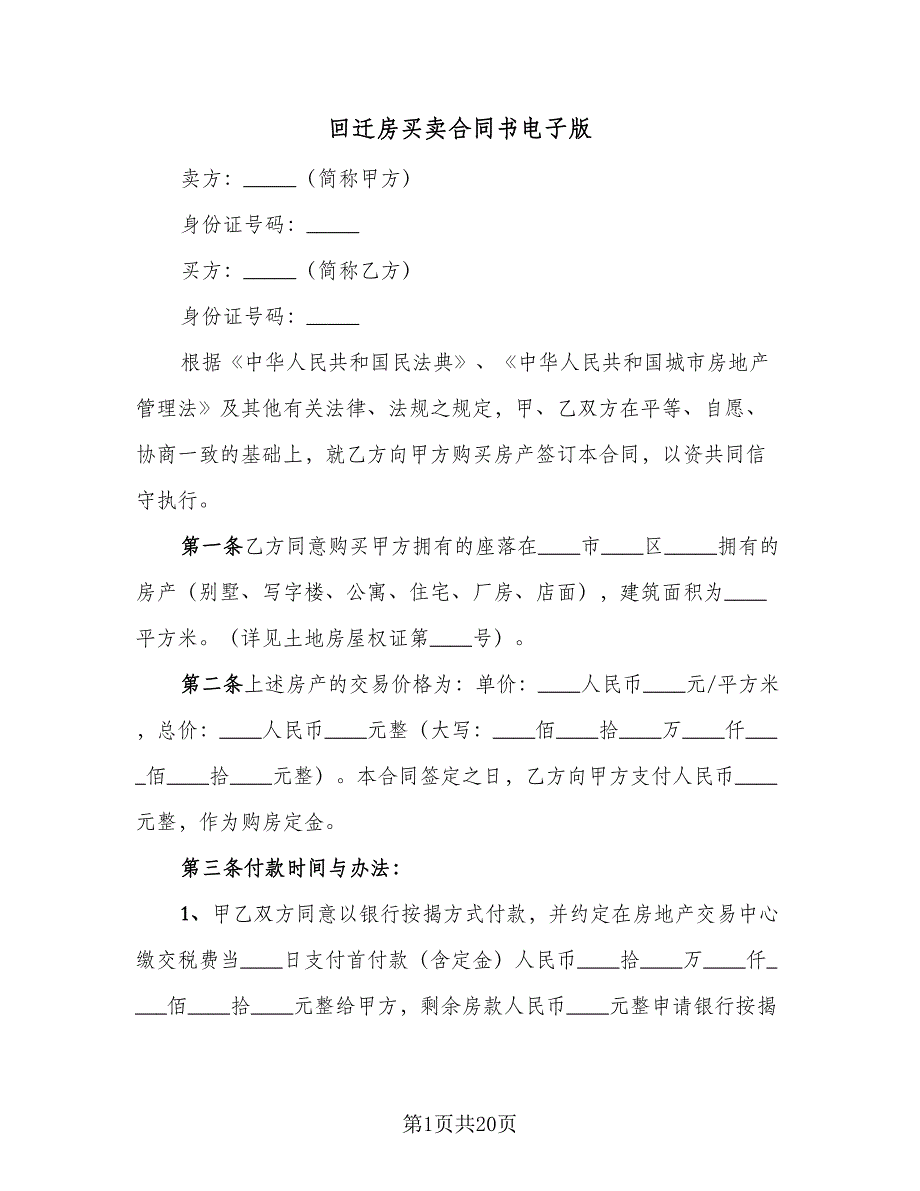 回迁房买卖合同书电子版
卖方：_____（简称甲方）
身份证号码：_____
买方：_____（简称乙方）
身份证号码：_____
根据《中华人民共和国民法典》、《中华人民共和国城市房地产
管理法》及其他有关法律、法规之规定，甲、乙双方在平等、自愿、
协商一致的基础上，就乙方向甲方购买房产签订本合同，以资共同信
守执行。
第一条乙方同意购买甲方拥有的座落在____市____区_____拥有的
房产（别墅、写字楼、公寓、住宅、厂房、店面），建筑面积为____
平方米。（详见土地房屋权证第____号）。
第二条上述房产的交易价格为：单价：____人民币____元/平方米
，总价：____人民币____元整（大写：____佰____拾____万____仟___
_佰____拾____元整）。本合同签定之日，乙方向甲方支付人民币____
元整，作为购房定金。
第三条付款时间与办法：
1、甲乙双方同意以银行按揭方式付款，并约定在房地产交易中心
缴交税费当____日支付首付款（含定金）人民币____拾____万____仟_
___佰____拾____元整给甲方，剩余房款人民币____元整申请银行按揭
第1页共20页